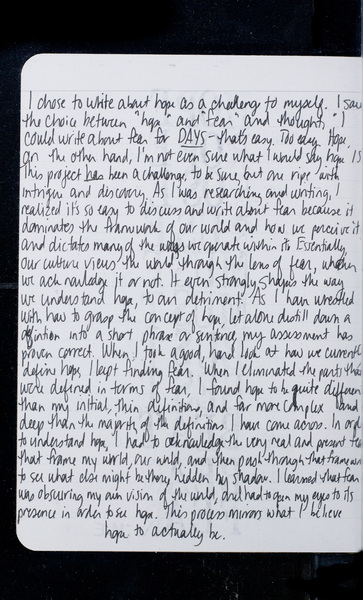 I chose to write about hope as a challenge to myself. I saw
the choice between "hope" and "fear" and thought, "I
could write about fear for DAYS - that's easy. Too easy. Hope,
on the other hand, I'm not even sure what I would say hope is
This project has been a challenge, to be sure, but one ripe with
intrigue and discovery. As I was researching and writing, I
realized it's so easy to discuss and write about fear because it
dominates the framework of our world and how we perceive it
and dictates many of the ways we operate within its Essentially,
our culture views the world through the lens of fear, whether
we acknowledge it or not. It even strongly shapes the way
we understand hope, to our detriment. As I have wrestled
with how to grasp the concept of hope, let alone distill down a
definition into a short phrase or sentence, my assessment has
proven correct. When I took a good, hard look at how we current
define hope, I kept finding fear. When I eliminated the parts that
were defined in terms of fear, I found hope to be quite differen
than my initial, thin definitions, and far more complex and
deep than the majority of the definitions I have come across. In ord
to understand hope, I had to acknowledge the very real and present fea
that frame my world, our world, and then push through that framewor
to see what else might be there, hidden by shadow. I learned that fear
was obscuring my own vision of the world, and had to open my eyes to its
presence in order to see hope. This process mirrors what I believe
hope to actually be.